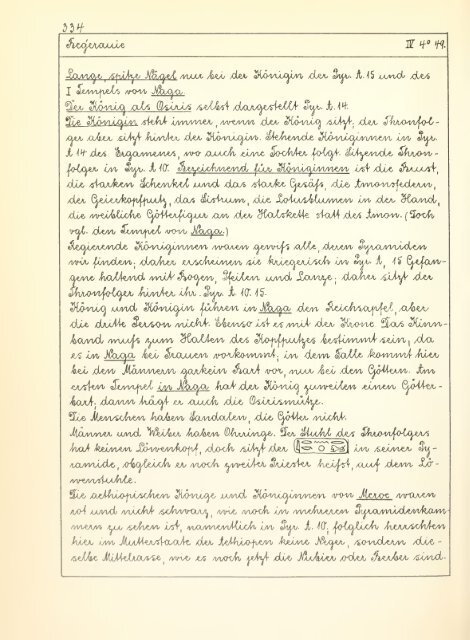 334
Begerauie IV 4° 49.
Lange, spitze Nägel nur bei der Königin der Pyr. A 15 und des
I Tempels von Naga
Der König als Osiris selbst dargestellt Pyr. A. 14.
Die Königin steht immer, wenn der König sitzt, der Thronfol-
ger aber sitzt hinter der Königin. Stehende Königinnen in Pyr.
A 14 des Ergamenes, wo auch eine Tochter folgt. Sitzende Thron-
folger in Pyr. A 10. Bezeichnend für Königinnen ist die Brust,
die starken Schenkel und das starke Gesäfs, die Amonsfedern,
der Geierkopfputz, das Sistrum, die Lotusblumen in der Hand,
die weibliche Götterfigur an der Halskette statt des Amon. (Doch
vgl. den Tempel von Naga.)
Regierende Königinnen waren gewifs alle, deren Pyramiden
wir finden; daher erscheinen sie kriegerisch in Pyr. A, 15 Gefan-
gene haltend mit Bogen, Pfeilen und Lanze; daher sitzt der
Thronfolger hinter ihr. Pyr. A 10. 15.
König und Königin führen in Naga den Reichsapfel, aber
die dritte Person nicht. Ebenso ist es mit der Krone. Das Kinn-
band mufs zum Halten des Kopfputzes bestimmt sein, da
es in Naga bei Frauen vorkommt; in dem Falle kommt hier
bei den Männern gar kein Bart vor, nur bei den Göttern. Am
ersten Tempel in Naga hat der König zuweilen einen Götter-
bart, dann trägt er auch die Osirismütze.
Die Menschen haben Sandalen, die Götter nicht.
Männer und Weiber haben Ohrringe. Der Stuhl des Thronfolgers
hat keinen Löwenkopf, doch sitzt der in seiner Py-
ramide, obgleich er noch zweiter Priester heifst, auf dem Lö-
wenstuhle.
Die aethiopischen Könige und Königinnen von Meroe waren
rot und nicht schwarz, wie noch in mehreren Pyramidenkam-
mern zu sehen ist, namentlich in Pyr. A. 10, folglich herrschten
hier im Mutterstaate der Aethiopen keine Neger, sondern die-
selbe Mittelrasse, wie es noch jetzt die Nubier oder Berber sind.